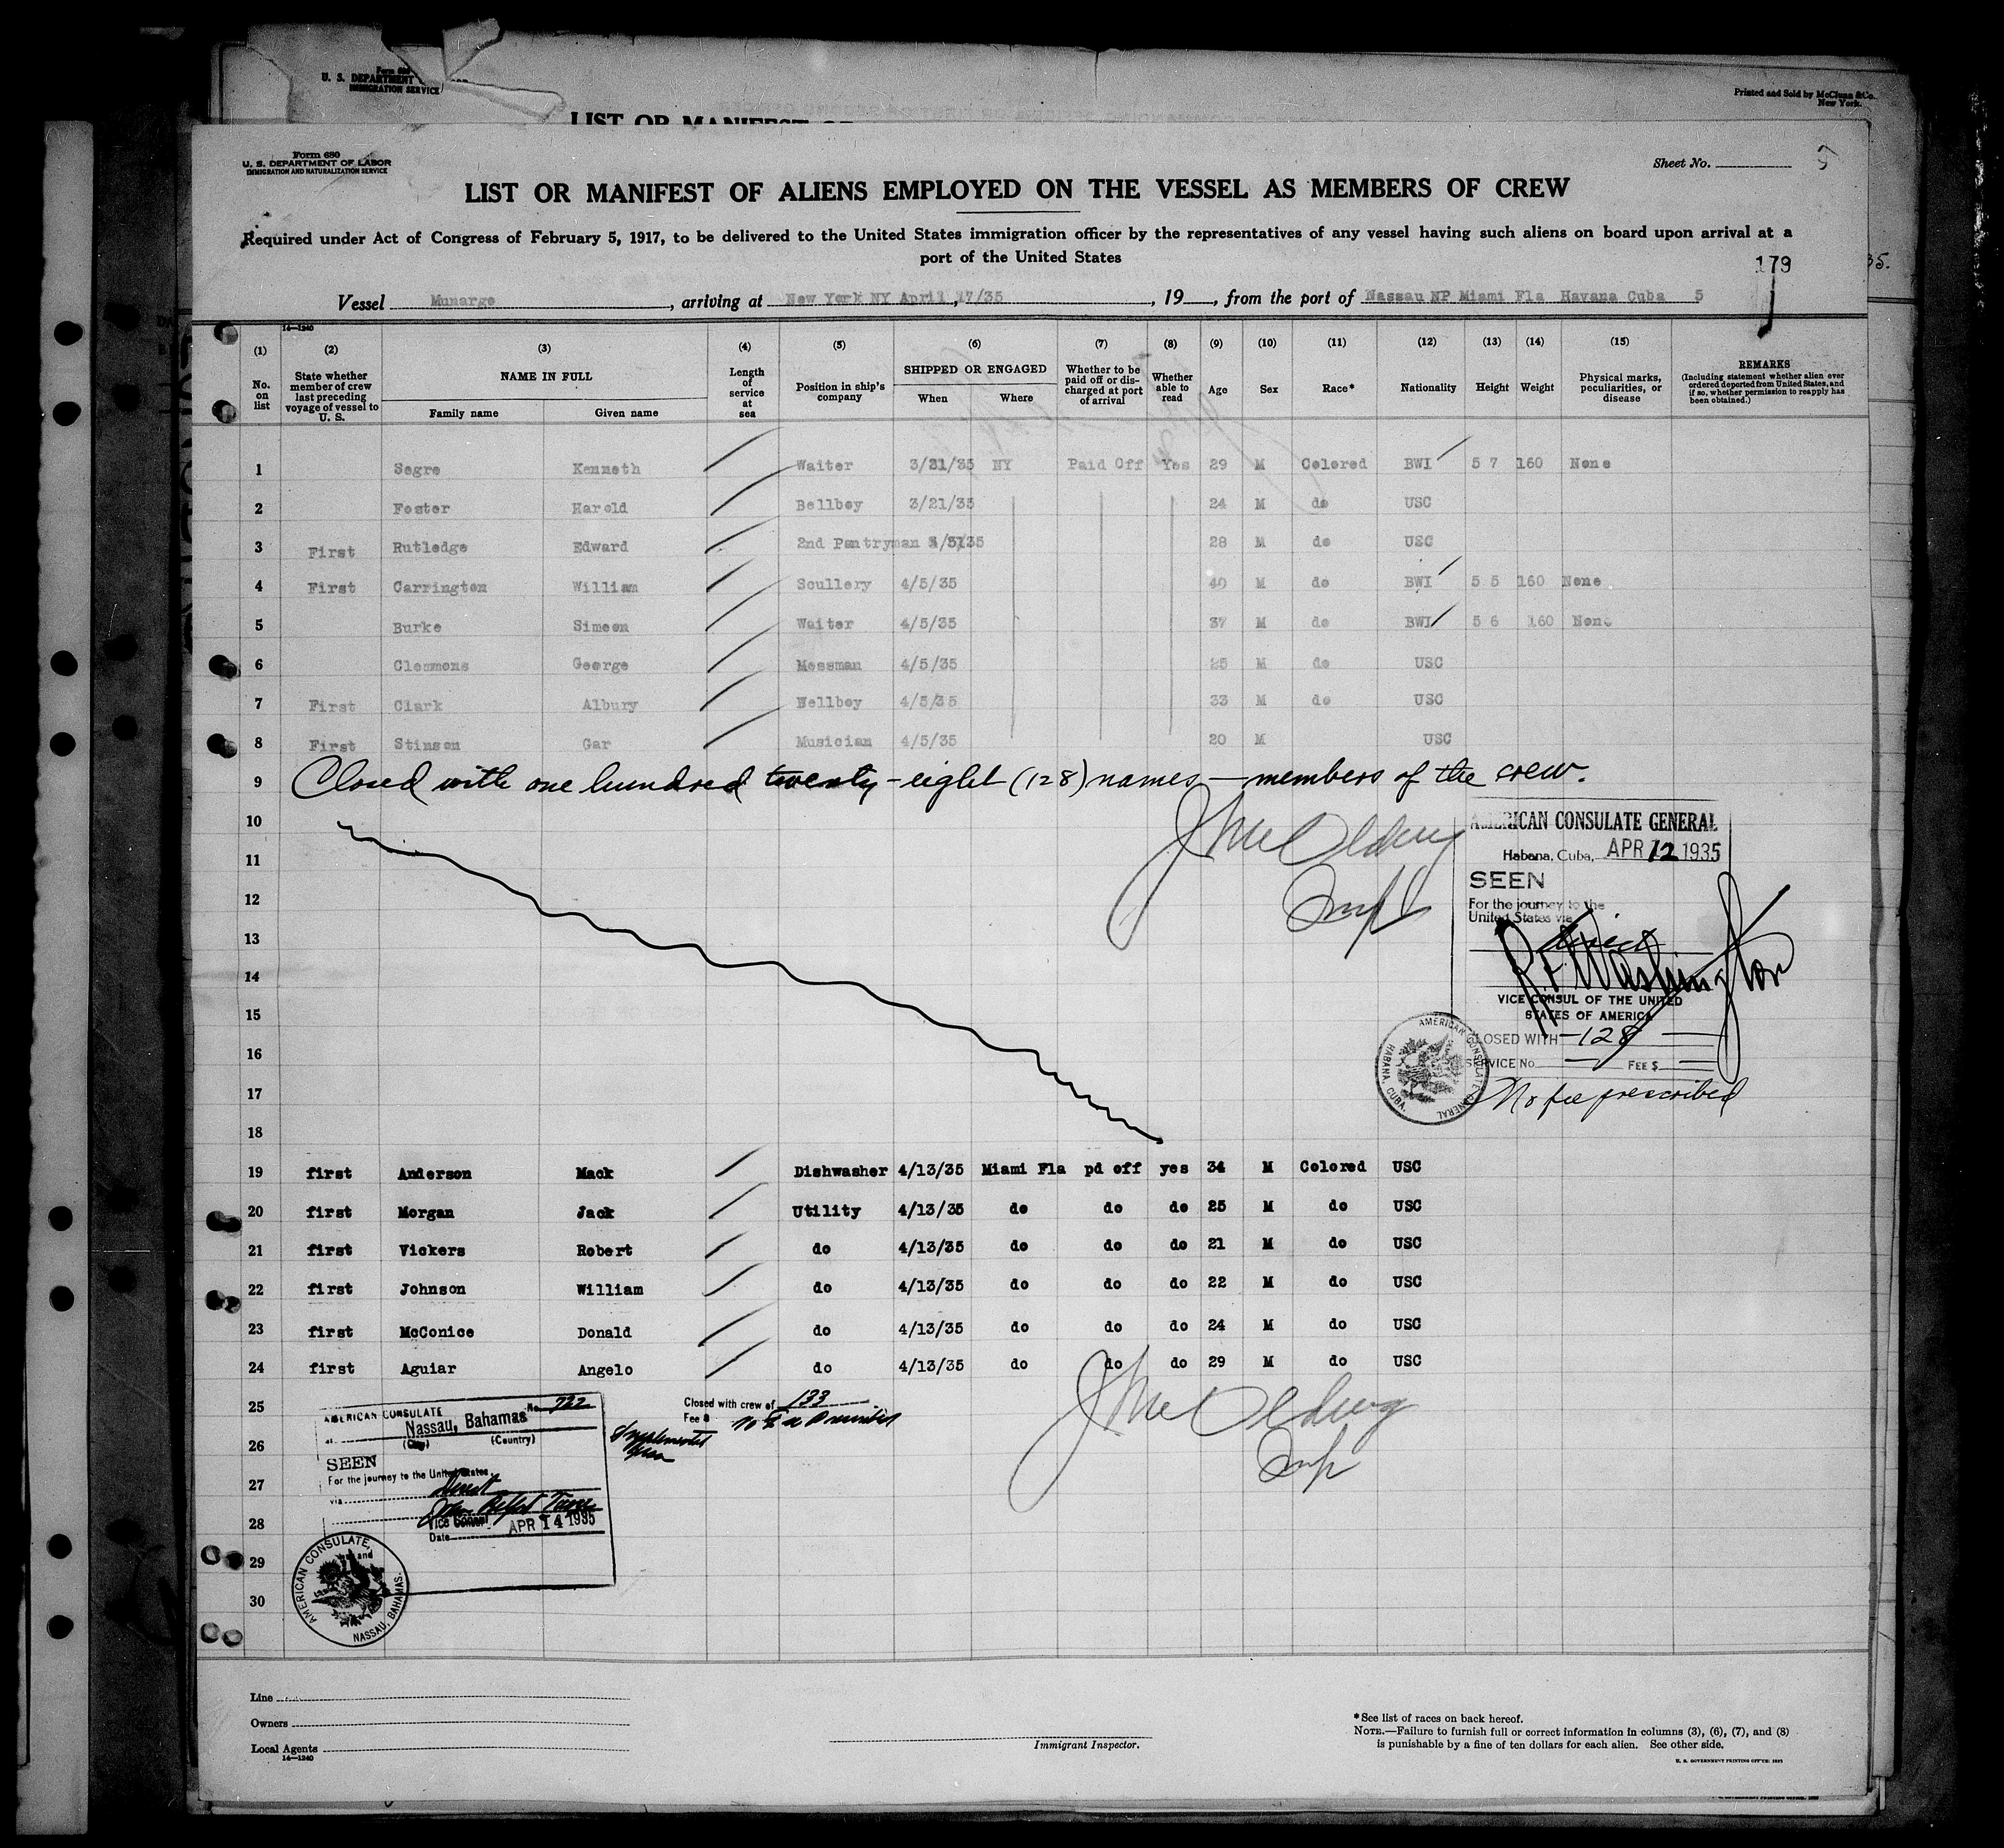 Form 680
U. S. DEPARTMENT
IMMIGRATION SERVICE
Printed and Sold by McClunn & Co.
New York.
LIST OR MANIFEST
Form 680
U. S. DEPARTMENT OF LABOR
IMMIGRATION AND NATURALIZATION SERVICE
Sheet No. 5
LIST OR MANIFEST OF ALIENS EMPLOYED ON THE VESSEL AS MEMBERS OF CREW
Required under Act of Congress of February 5, 1917, to be delivered to the United States immigration officer by the representatives of any vessel having such aliens on board upon arrival at a
port of the United States
179
35.
Vessel Munargo, arriving at New York NY April 17/35, 19, from the port of Nassau NP Miami Fla Havana Cuba 5
14—1240
(1) No. on list
(2) State whether member of crew last preceding voyage of vessel to U. S.
(3) NAME IN FULL Family name Given name
(4) Length of service at sea
(5) Position in ship's company
(6) SHIPPED OR ENGAGED When Where
(7) Whether to be paid off or discharged at port of arrival
(8) Whether able to read
(9) Age
(10) Sex
(11) Race*
(12) Nationality
(13) Height
(14) Weight
(15) Physical marks, peculiarities, or disease
REMARKS (Including statement whether alien ever ordered deported from United States, and if so, whether permission to reapply has been obtained.)
1 Segre Kenneth Waiter 3/21/35 NY Paid Off Yes 29 M Colored BWI 5 7 160 None
2 Foster Harold Bellboy 3/21/35 24 M do USC
3 First Rutledge Edward 2nd Pantryman 28 M do USC
4 First Carrington William Scullery 4/5/35 40 M do BWI 5 5 160 None
5 Burke Simeon Waiter 4/5/35 37 M do BWI 5 6 160 None
6 Clemmons George Messman 4/5/35 25 M do USC
7 First Clark Albury Wellboy 4/5/35 33 M do USC
8 First Stinson Gar Musician 4/5/35 20 M USC
9 Closed with one hundred twenty-eight (128) names — members of the crew.
10
11
12
13
14
15
16
17
18
AMERICAN CONSULATE GENERAL
Habana, Cuba, APR 12 1935
SEEN
For the journey to the
United States via
direct
R F Washington
VICE CONSUL OF THE UNITED
STATES OF AMERICA
CLOSED WITH —128—
SERVICE No. — FEE $ —
No fee prescribed
AMERICAN CONSULATE GENERAL HABANA, CUBA.
19 first Anderson Mack Dishwasher 4/13/35 Miami Fla pd off yes 34 M Colored USC
20 first Morgan Jack Utility 4/13/35 do do do 25 M do USC
21 first Vickers Robert do 4/13/35 do do do 21 M do USC
22 first Johnson William do 4/13/35 do do do 22 M do USC
23 first McConice Donald do 4/13/35 do do do 24 M do USC
24 first Aguiar Angelo do 4/13/35 do do do 29 M do USC
25
26
27
28
29
30
AMERICAN CONSULATE No. 722
at Nassau, Bahamas
(City) (Country)
SEEN
For the journey to the United States.
via direct
Vice Consul
Date APR 14 1935
AMERICAN CONSULATE, NASSAU, BAHAMAS.
Closed with crew of 133
Fee $ No Fee
Line
Owners
Local Agents
14—1240
Immigrant Inspector.
*See list of races on back hereof.
NOTE.—Failure to furnish full or correct information in columns (3), (6), (7), and (8)
is punishable by a fine of ten dollars for each alien. See other side.